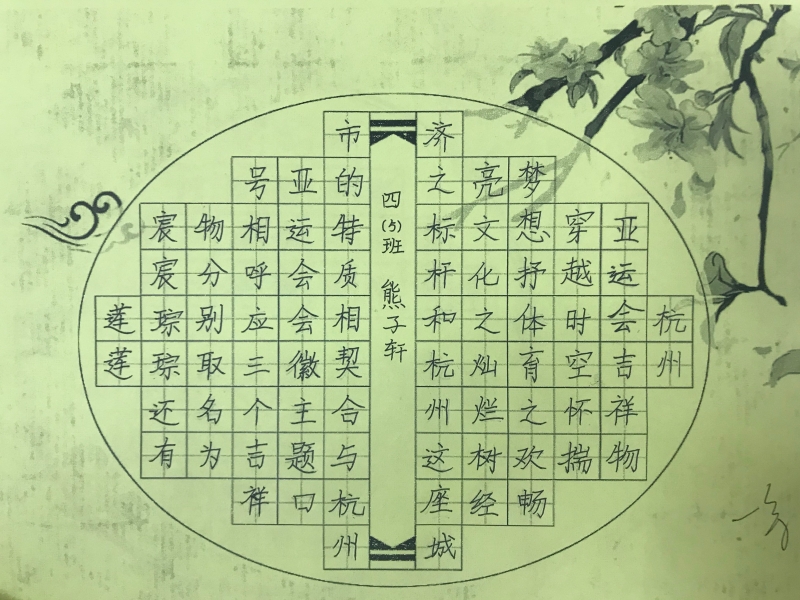 杭州
亚运会吉祥物
穿越时空怀揣
梦想抒体育之欢畅
亮文化之灿烂树经
济之标杆和杭州这座城
四(5)班 熊子轩
市的特质相契合与杭州
亚运会会徽主题口
号相呼应三个吉祥
物分别取名为
宸宸琮琮还有
莲莲